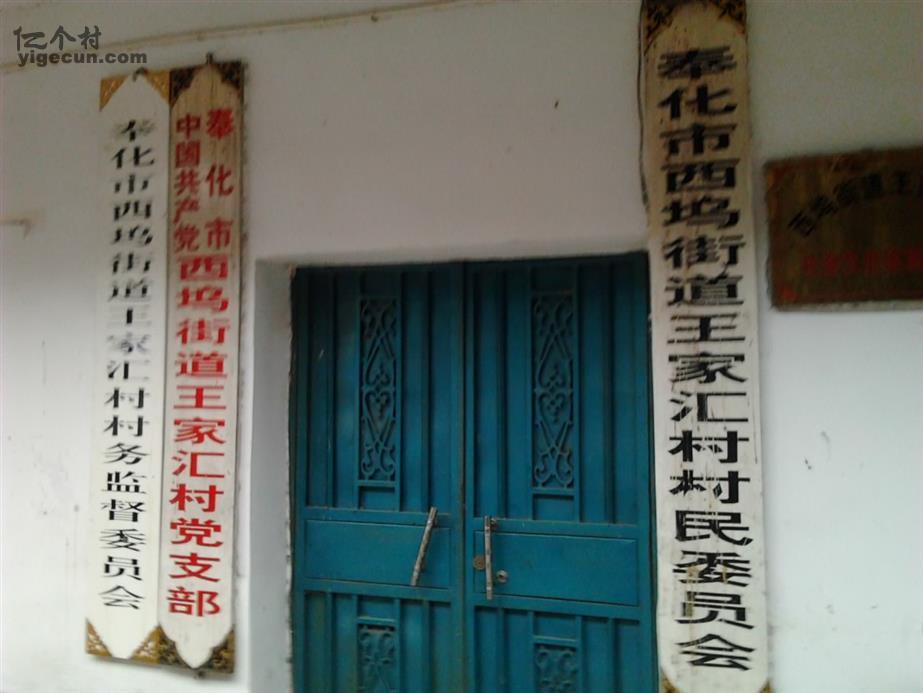 亿个村
yigecun.com
奉化市西坞街道王家汇村村务监督委员会
中国共产党
奉化市
西坞街道王家汇村党支部
奉化市西坞街道王家汇村村民委员会
西坞街道王